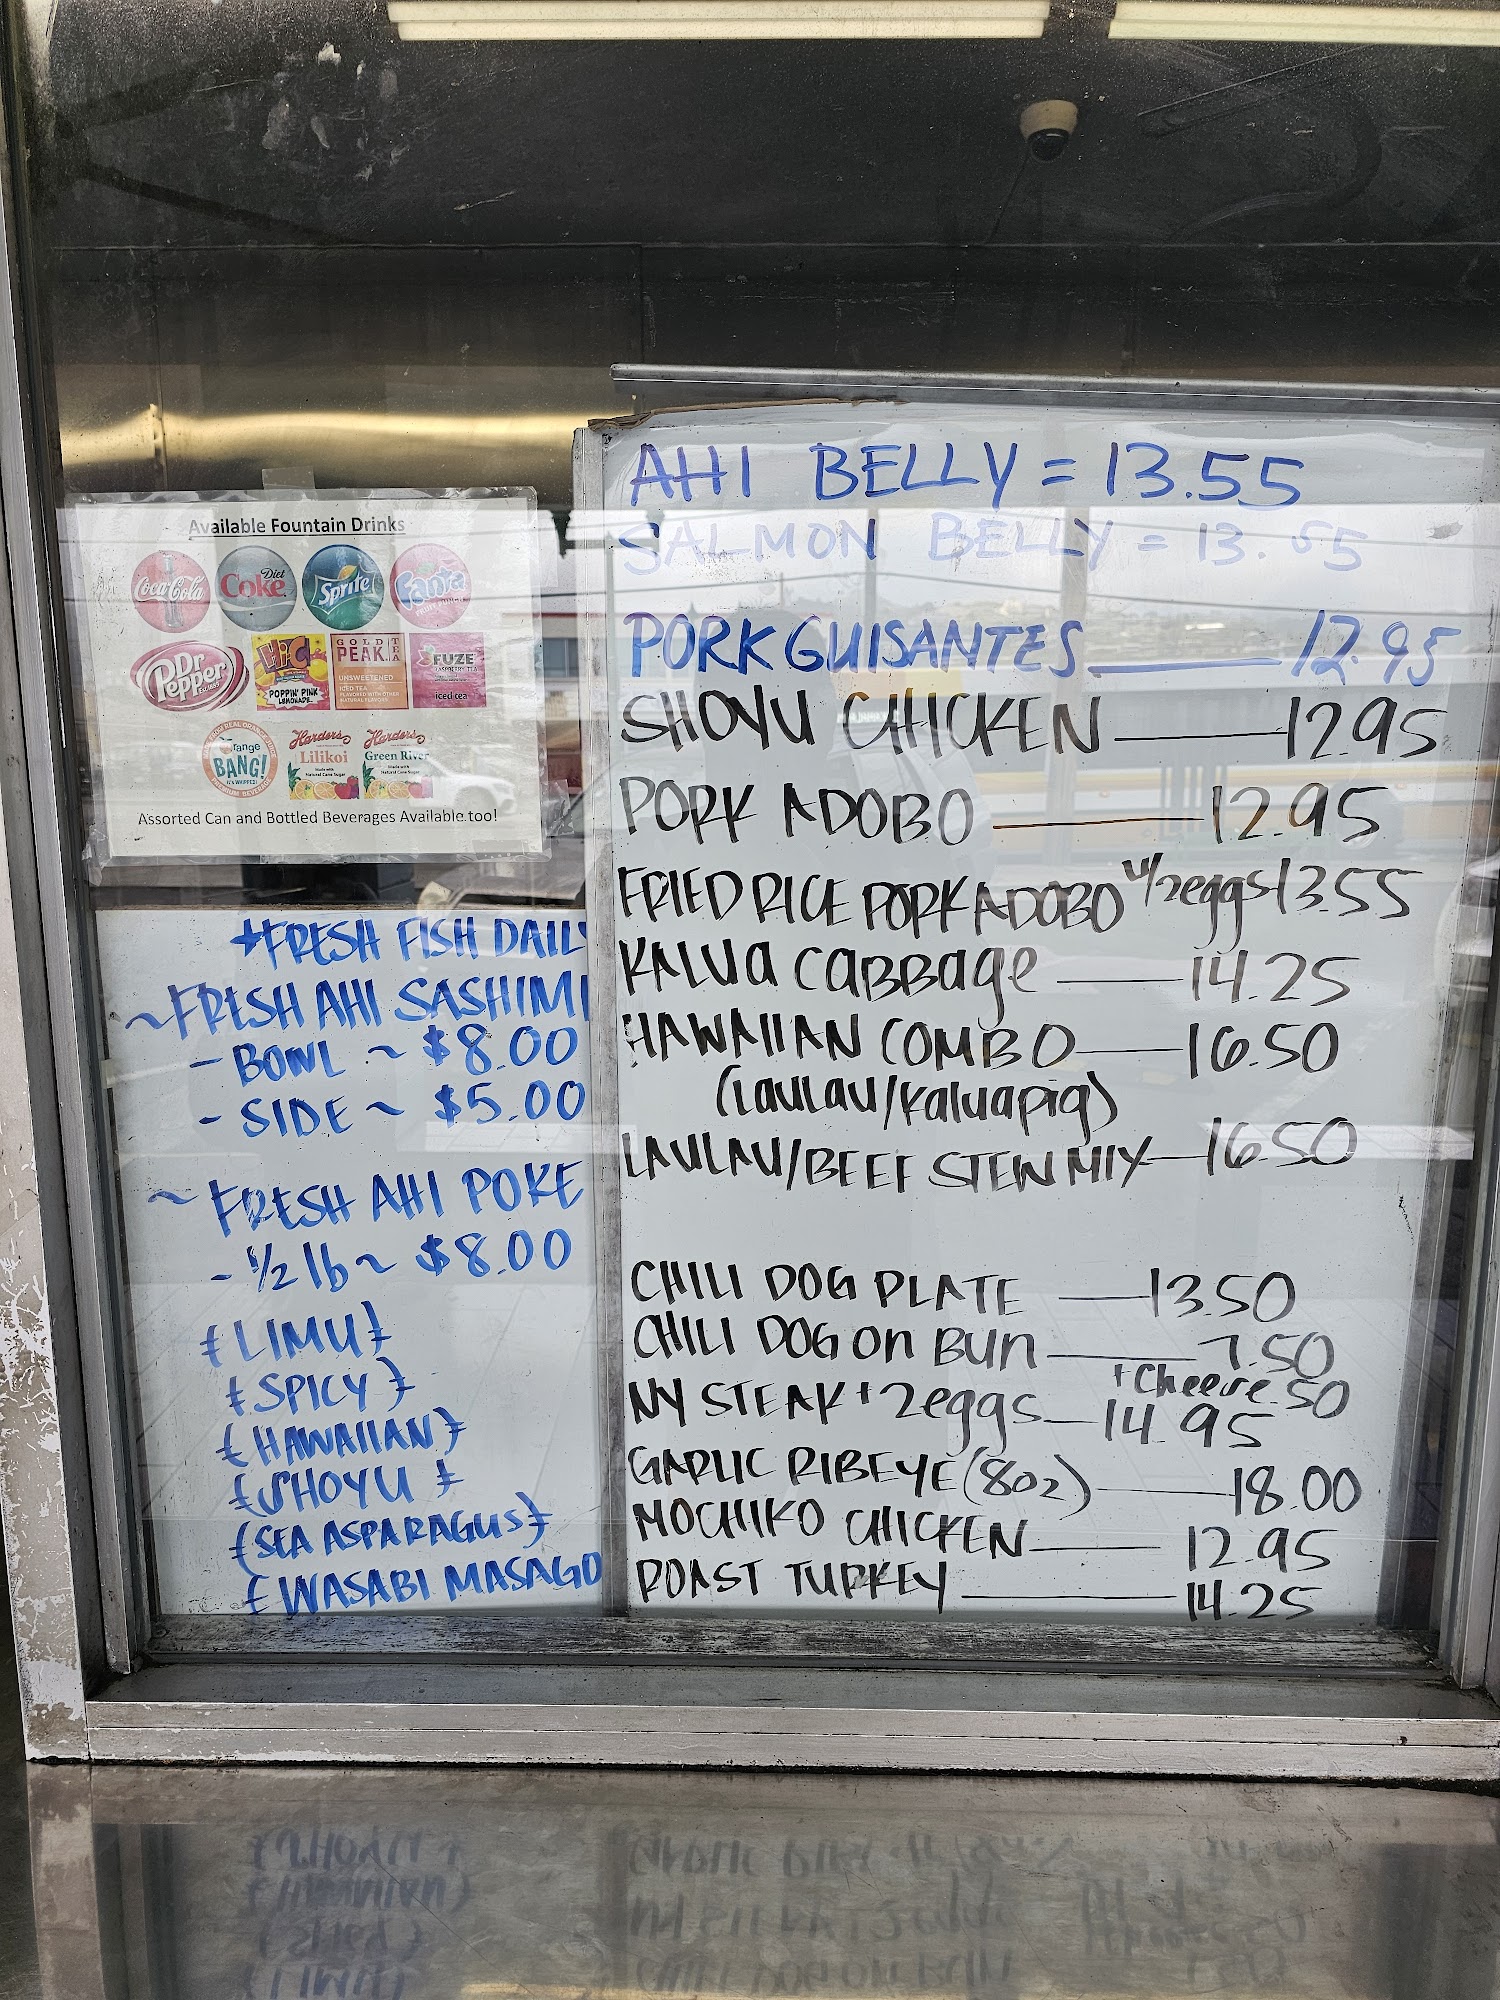 Available Fountain Drinks
Coca-Cola
Diet
Coke
Sprite
Fanta
FRUIT PUNCH
Dr
Pepper
Hi-C
POPPIN' PINK
LEMONADE
GOLD
PEAK
TEA
UNSWEETENED
ICED TEA
FUZE
RASPBERRY TEA
iced tea
Orange
BANG!
IT'S WHIPPED!
Harders
Lilikoi
Made with
Natural Cane Sugar
Harders
Green River
Made with
Natural Cane Sugar
Assorted Can and Bottled Beverages Available too!
+FRESH FISH DAILY
~FRESH AHI SASHIMI
- BOWL ~ $8.00
- SIDE ~ $5.00
~ FRESH AHI POKE
- 1/2 lb ~ $8.00
{LIMU}
{SPICY}
{HAWAIIAN}
{SHOYU}
{SEA ASPARAGUS}
{WASABI MASAGO
AHI BELLY = 13.55
SALMON BELLY = 13.55
PORK GUISANTES 12.95
SHOYU CHICKEN 12.95
PORK ADOBO 12.95
FRIED RICE PORK ADOBO w/2eggs 13.55
KALUA CABBAGE 14.25
HAWAIIAN COMBO 16.50
(LAULAU/Kaluapig)
LAULAU/BEEF STEW MIX 16.50
CHILI DOG PLATE 13.50
CHILI DOG ON BUN 7.50
+Cheese .50
NY STEAK + 2eggs 14.95
GARLIC RIBEYE (8oz) 18.00
MOCHIKO CHICKEN 12.95
ROAST TURKEY 14.25